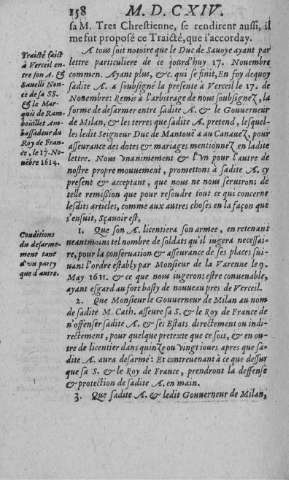 158 M. D. CXIV.
sa M. Tres Chrestienne, se rendirent aussi, il
me fut proposé ce Traicté, que i'accorday.
Traicté faict
à Verceil en-
tre son A. &
Sauelli Nonce
de sa SS.
& le Mar-
quis de Ram-
boüillet Am-
bassadeur du
Roy de Fran-
ce, le 17. No-
uébre 1614.
A tous soit notoire que le Duc de Sauoye ayant par
lettre particuliere de ce jourd'huy 17. Nouembre
commen. Ayant pleu, &c. qui se finit, En foy dequoy
sadite A. a soubsigné la presente à Verceil le 17. de
Nouembre: Remis à l'arbitrage de nous soubsignez, la
forme de desarmer entre sadite A. & le Gouuerneur
de Milan, & les terres que sadite A. pretend, lesquel-
les ledit Seigneur Duc de Mantouë a au Canauez, pour
asseurance des dotes & mariages mentionnez en ladite
lettre. Nous vnanimement & l'vn pour l'autre de
nostre propre mouuement, promettons à sadite A. cy
present & acceptant, que nous ne nous seruirons de
telle remission que pour resoudre tout ce qui concerne
lesdits articles, comme aux autres choses en la façon que
s'ensuit, Sçauoir est,
Conditions
du desarme-
ment tant
d'vn party
que d'autre.
1. Que son A. licentiera son armee, en retenant
neantmoins tel nombre de soldats qu'il iugera necessai-
re, pour la conseruation & asseurance de ses places sui-
uant l'ordre estably par Monsieur de la Varenne le 9.
May 1611. & ce que nous iugerons estre conuenable,
ayant esgard au fort basty de nouueau pres de Verceil.
2. Que Monsieur le Gouuerneur de Milan au nom
de sadite M. Cath. asseure sa S. & le Roy de France de
n'offenser sadite A. & ses Estats directement ou indi-
rectement, pour quelque pretexte que ce soit, & en ou-
tre de licentier dans quinze ou vingt iours apres que sa-
dite A. aura desarmé: Et contreuenant à ce que dessus
que sa S. & le Roy de France, prendront la deffense
& protection de sadite A. en main.
3. Que sadite A. & ledit Gouuerneur de Milan,